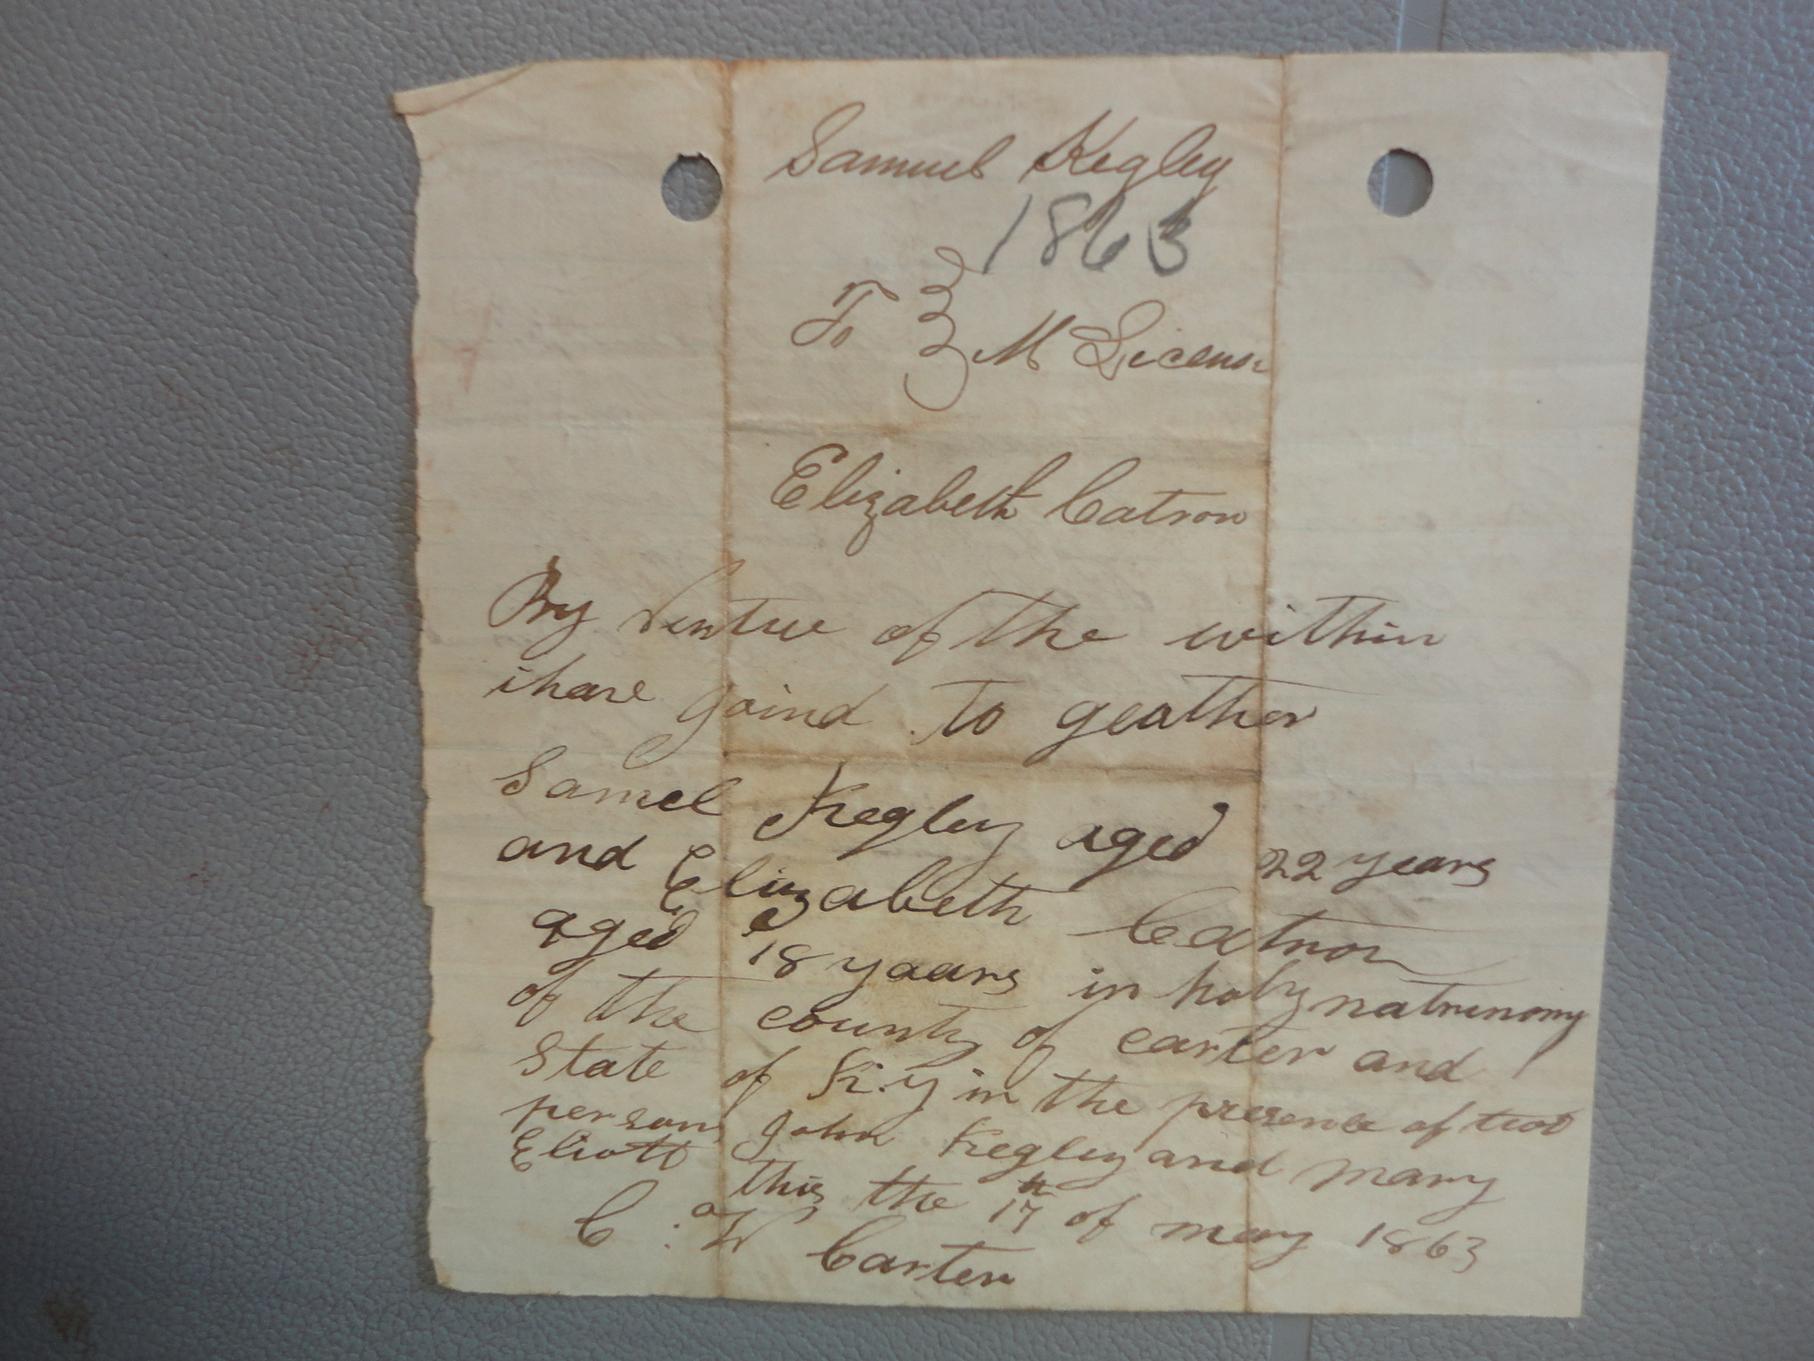 Samuel Kegley
1863
To } M License
Elizabeth Catron
By Vertue of the within
i have goind to geather
Samel Kegley aged 22 years
and Elizabeth Catron
aged 18 yaars in holy natrimony
of the county of carter and
State of K.y in the presence of two
persons John Kegley and mary
Eliott this the 17th of may 1863
C. W Carter